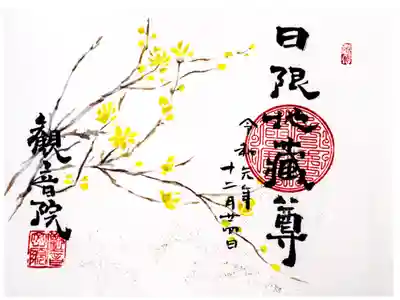 日限地藏尊
令和元年
十二月廿四日
観音院